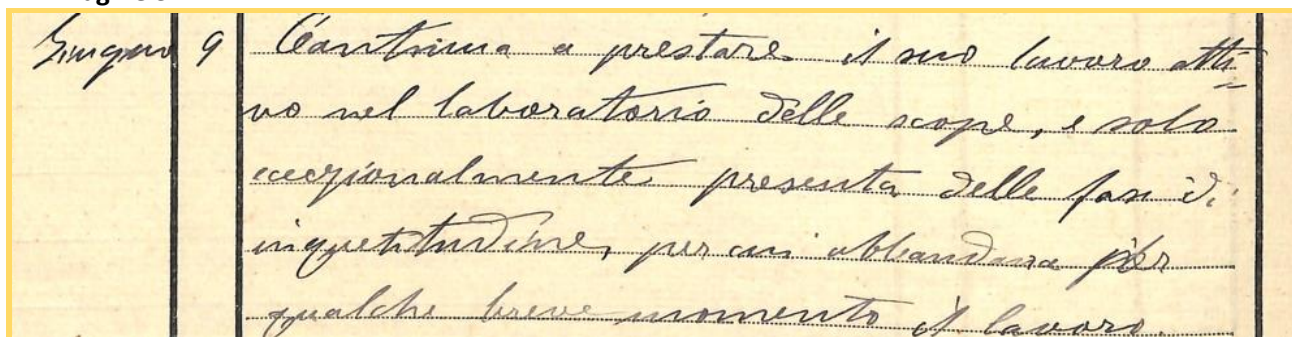 Giugno 9 Continua a prestare il suo lavoro atti=
vo nel laboratorio delle scope, e solo
eccezionalmente presenta delle fasi di
inquietitudine, per cui abbandona per
qualche breve momento il lavoro.